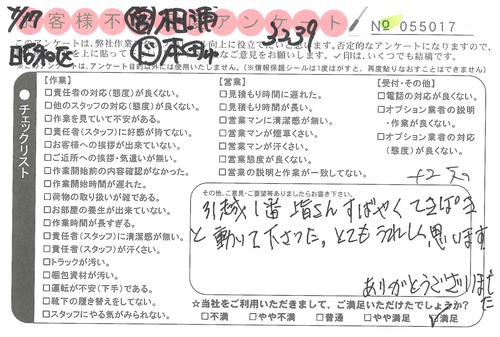 7/17
お客様不満アンケート
相源
3239
№ 055017
昭和区
このアンケートは、弊社作業
向上に役立てたいと思います。否定的なアンケートになりますので、
を上に貼って
なご意見をお願いします。✓印は、いくつでも結構です。
は、アンケート目的以外には使用いたしません。(※情報保護シールは1度はがすと、再度貼りなおすことはできません)
チェックリスト
【作業】
□責任者の対応(態度)が良くない。
□他のスタッフの対応(態度)が良くない。
□作業を見ていて不安がある。
□責任者(スタッフ)に好感が持てない。
□お客様への挨拶が出来ていない。
□ご近所への挨拶・気遣いが無い。
□作業開始前の内容確認がなかった。
□作業開始時間が遅れた。
□荷物の取り扱いが雑である。
□お部屋の養生が出来ていない。
□作業時間が長すぎる。
□責任者(スタッフ)に清潔感が無い。
□責任者(スタッフ)が汗くさい。
□トラックが汚い。
□梱包資材が汚い。
□運転が不安(下手)である。
□靴下の履き替えをしてない。
□スタッフにやる気がみられない。
【営業】
□見積もり時間に遅れた。
□見積もり時間が長い。
□営業マンに清潔感が無い。
□営業マンが煙草くさい。
□営業マンが汗くさい。
□営業態度が良くない。
□営業の説明と作業が一致してない。
【受付・その他】
□電話の対応が良くない。
□オプション業者の説明
・作業が良くない。
□オプション業者の対応
(態度)が良くない。
その他、ご意見・ご要望等ありましたらお書き下さい。
引越し1番 皆さんすばやく てきぱき
と動いて下さった。とてもうれしく思います
ありがとうございました
☆当社をご利用いただきまして、ご満足いただけたでしょうか?
□不満 □やや不満 □普通 □やや満足 ☑満足